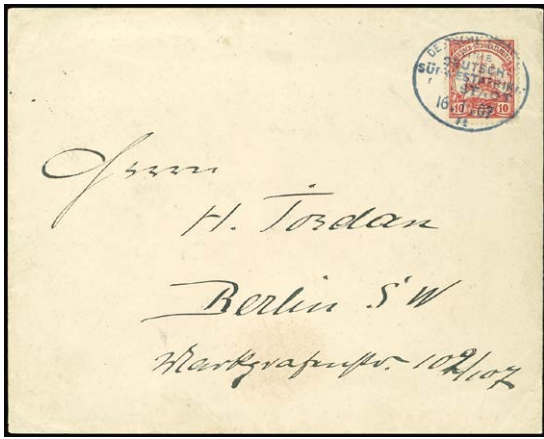 DEUTSCHE
DEUTSCH
SÜDWESTAFRIKA
16
10 10
Herrn
H. Jordan
Berlin SW
Markgrafenstr. 102/107